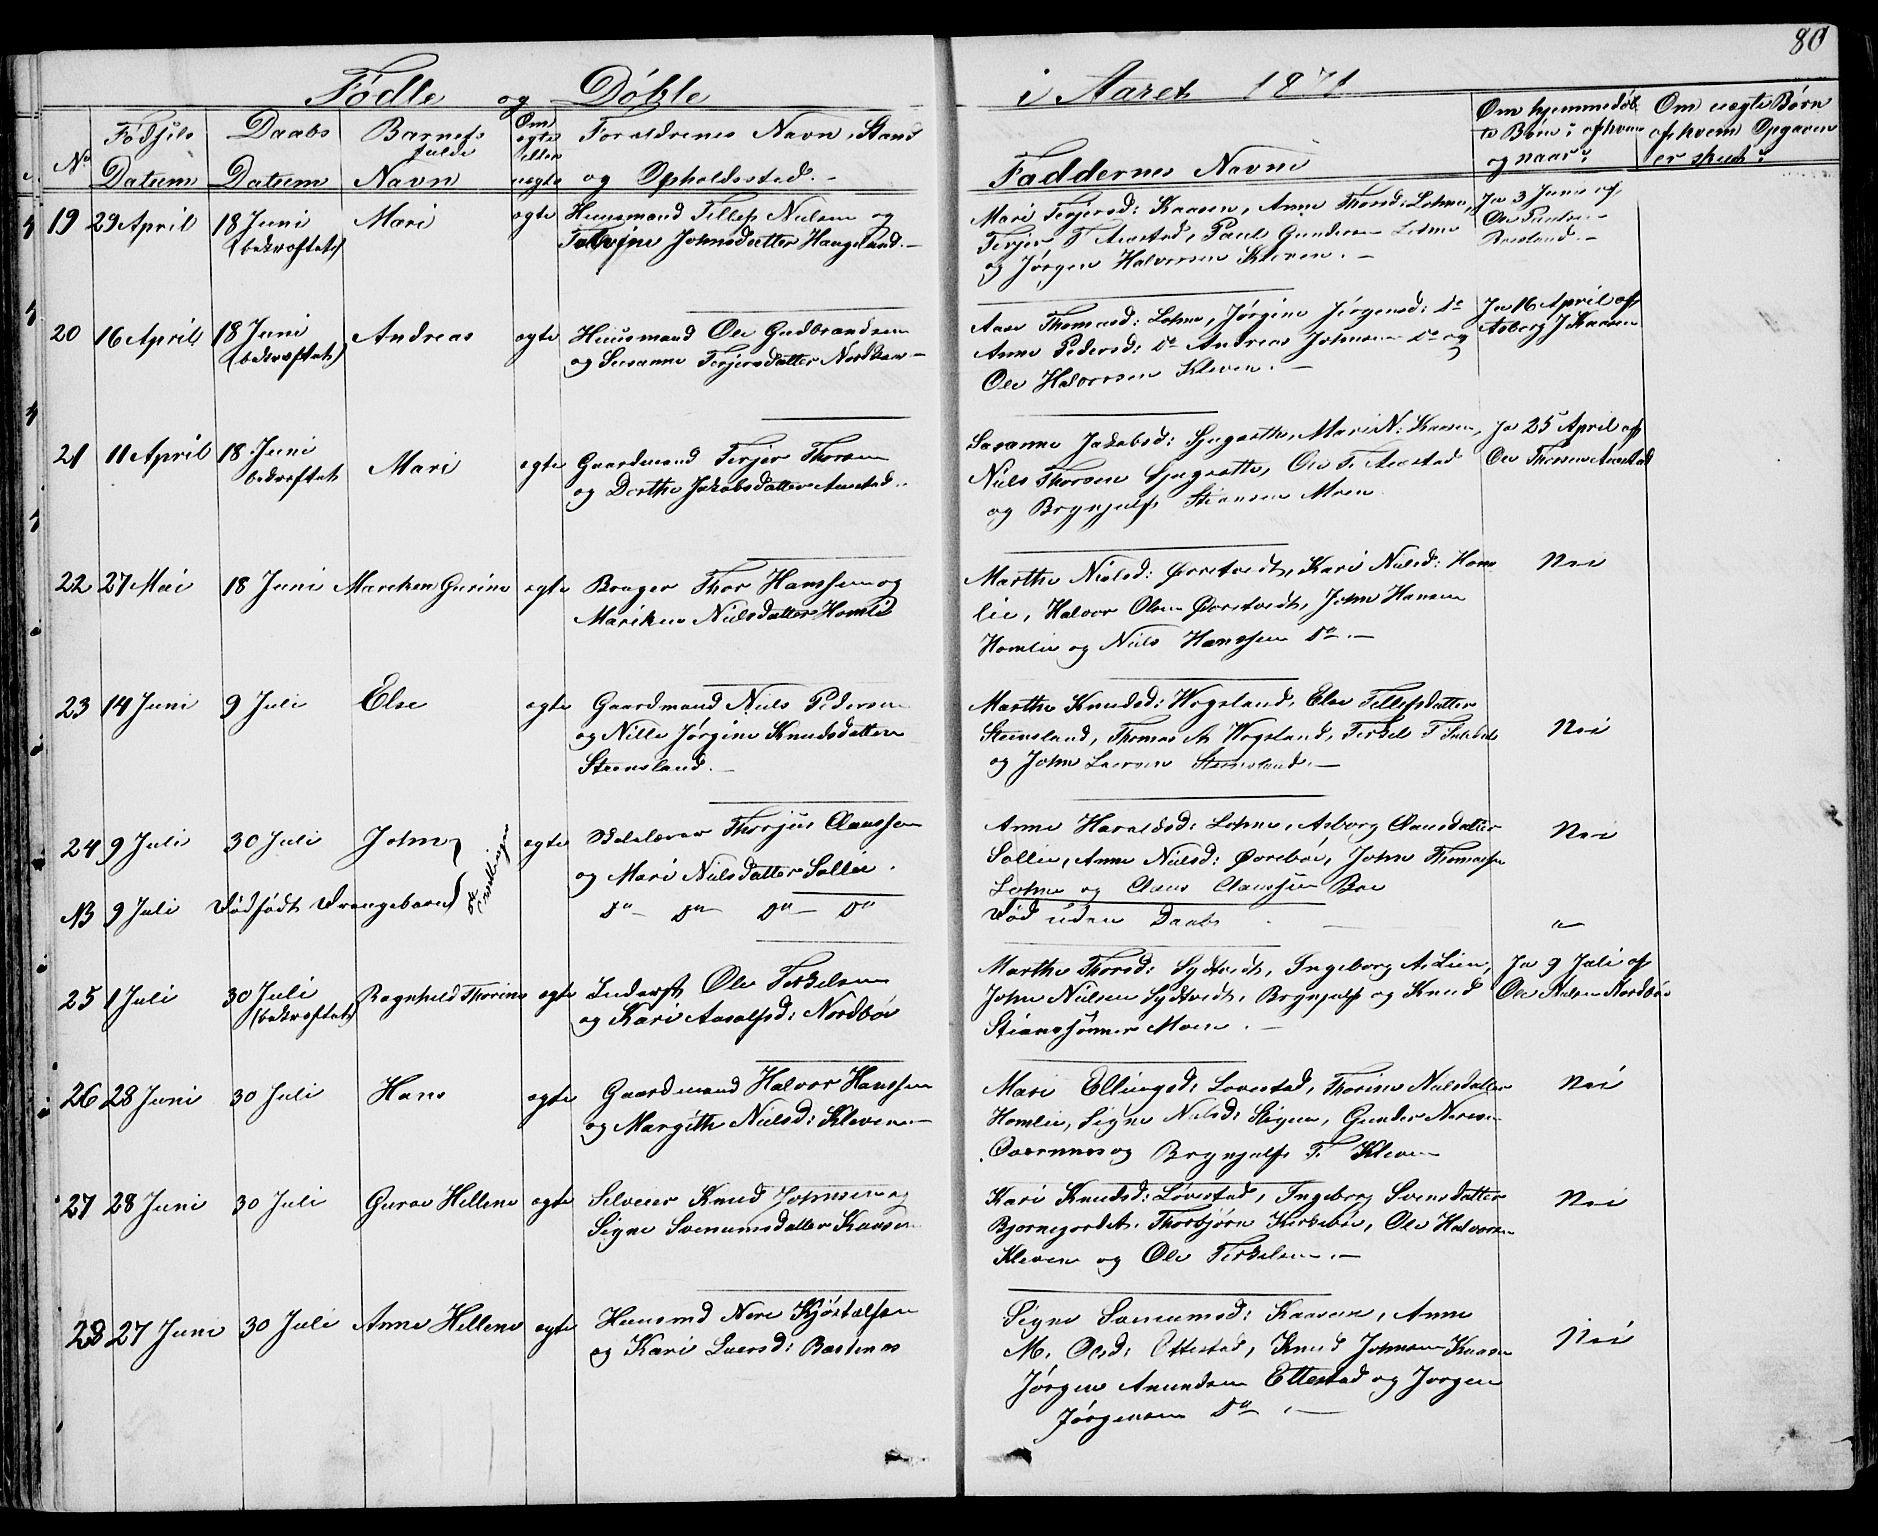 80
Födte og Döbte i Aaret 1871
No Födsels Datum Daabs Datum Barnets fulde Navn Om ægte eller uægte Forældrenes Navn, Stand og Opholdssted.- Faddernes Navne Om hjemmedöbte Börn; af hvem og naar? Om uægte Börn af hvem Opgaven er skeet?
19 29 April 18 Juni Mari ægte Huusmand Tellef Nielsen og
(bekræftet) Johnsdatter Haugeland.-
Mari Terjersd: Kaasen, Anne Thorsd: Lohne,
Terjer T Aaestad, Paul Gundersen Lohne
og Jörgen Halvorsen Kleven.-
Ja 3 Juni af
Ole
20 16 April 18 Juni Andreas ægte Huusmand Ole Gudbrandsen
(bekræftet) og Susanne Terjersdatter
Aase Thomasd: Lohne, Jörgine Jörgensd: Do
Anne Pedersd: Do Andreas Johnsen Do og
Ole Halvorsen Kleven.-
Ja 16 April af
Asborg J Kaasen
21 11 April 18 Juni Mari ægte Gaardmand Terjer Thorsen
bekræftet og Dorthe Jakobsdatter Aaestad.
Susanne Jakobsd: Mari N: Kaasen,
Niels Thorsen Ole T. Aaestad
og Brynjulf Stiansen Moen
Ja 25 April af
Ole Thorsen Aaestad
22 27 Mai 18 Juni Mareken Gurine ægte Bruger Thor Hanssen og
Mariken Nielsdatter Homlie
Marthe Nielsd: Kari Nielsd: Hom
lie, Halvor Olsen John Hansen
Homlie og Niels Hanssen Do.-
Nei
23 14 Juni 9 Juli Else ægte Gaardmand Niels Pedersen
og Nille Jörgine Knudsdatter
Steensland.-
Marthe Knudsd: Wegsland, Else Tellefsdatter
Steensland, Thomas A. Wegsland, Terkel T
og John Larsen Steensland.-
Nei
24 9 Juli 30 Juli John ægte Skolelærer Thorjus Claussen
og Mari Nielsdatter Sollie.
Anne Haraldsd: Lohne, Asborg Clausdatter
Sollie, Anne Nielsd: John Thomassen
Lohne og Claus Claussen Boe
Nei
NB 9 Juli Dödfödt Drengebarn Do Do Do Do
Död uden Daab
25 1 Juli 30 Juli Ragnhild Thorine ægte Inderst Ole Terkelsen
(bekræftet) og Kari Aasalfsd: Nordböe
Marthe Thorsd: Sydtvedt, Ingeborg A. Lien,
John Nielsen Sydtvedt, Brynjulf og Knud
Stianssönner Moen.-
Ja 9 Juli af
Ole Nielsen Nordböe
26 28 Juni 30 Juli Hans ægte Gaardmand Halvor Hanssen
og Margith Nielsd: Kleven.-
Mari Ellingsd: Lovestad, Thorine Nielsdatter
Homlie, Signe Nielsd: Gunder
og Brynjulf T. Kleven
Nei
27 28 Juni 30 Juli Guroe Hellene ægte Selveier Knud Johnsen og
Signe Svenumsdatter Kaasen
Kari Knudsd: Lövestad, Ingeborg Svensdatter
Thorbjörn Kirkeböe, Ole Halvorsen
Kleven og Ole Terkelsen.-
Nei
28 27 Juni 30 Juli Anne Hellene ægte Huusmd Nere Kjöstolsen
og Kari Larsd:
Signe Svenumsd: Kaasen, Anne
M. Olsd: Ettestad, Knud Johnsen Kaasen
Jörgen Amundsen Ettestad og Jorgen
Jörgensen Do.-
Nei